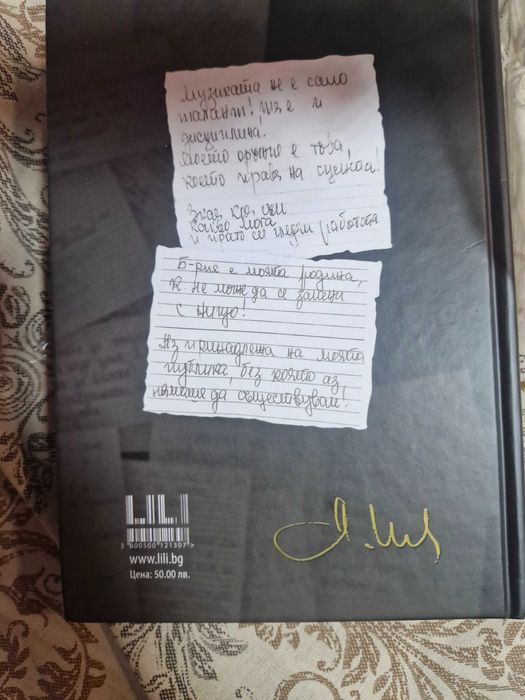 Музиката не е само
талант! тя е и
дисциплина.
Моето оръжие е това,
което правя на сцената!
Зная коя съм
какво мога
и просто си гледам работата
Б-рия е моята родина,
не може да се замени
с нищо!
Аз принадлежа на моята
публика, без която аз
нямаше да съществувам!
LILI
3 800500 121307 >
www.lili.bg
Цена: 50.00 лв.